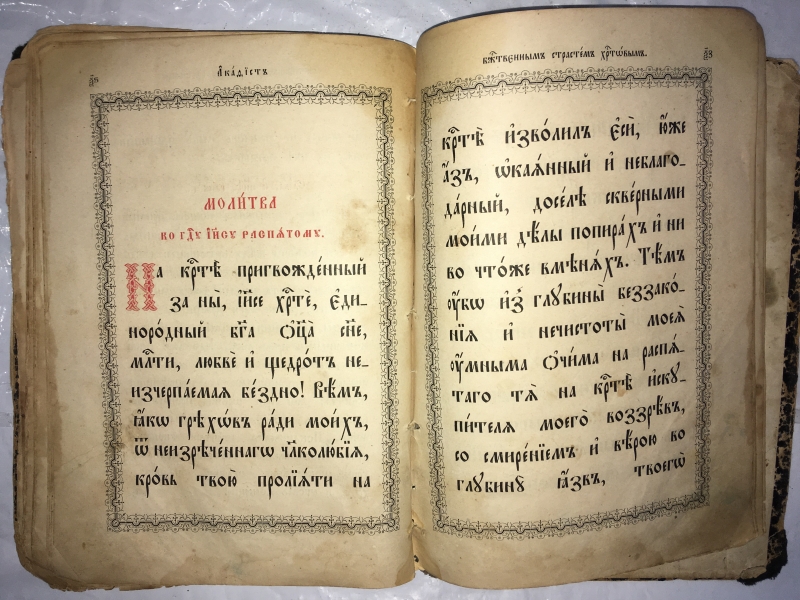 А҆ка́ѳїстъ
МОЛИ́ТВА
КО ГДⷭ҇У І҆И҃СУ РАСПѦ́ТОМУ.
На крⷭ҇тѣ̀ пригвожде́нный
за ны̀, І҆и҃се хрⷭ҇тѐ, є҆ди-
норо́дный бг҃а ѻ҆ц҃а̀ сн҃е,
млⷭ҇ти, любвѐ и҆ щедро́тъ не-
изчерпа́емая бе́здно! Вѣ́мъ,
ꙗ҆́кѡ грѣхѡ́въ ра́ди мои́хъ,
ѿ неизрече́ннагѡ чл҃колю́бїѧ,
кро́вь твою̀ пролїѧ́ти на
бжⷭ҇твєннымъ страстє́мъ хрⷭ҇тѡ́вымъ.
крⷭ҇тѣ̀ и҆зво́лилъ є҆сѝ, ю҆́же
а҆́зъ, ѡ҆каѧ́нный и҆ неблаго-
да́рный, досе́лѣ скве́рными
мои́ми дѣ́лы попира́хъ и҆ ни
во что́же вмѣнѧ́хъ. Тѣ́мъ
ᲂу҆́бѡ и҆з̾ глубины̀ беззако́-
нїѧ и҆ нечистоты̀ моеѧ̀
ᲂу҆́мныма ѻ҆чи́ма на распѧ́-
таго тѧ̀ на крⷭ҇тѣ̀ и҆ску-
пи́телѧ моего̀ воззрѣ́въ,
со смире́нїемъ и҆ вѣ́рою во
глубинꙋ̀ ꙗ҆́звъ, твоегѡ̀